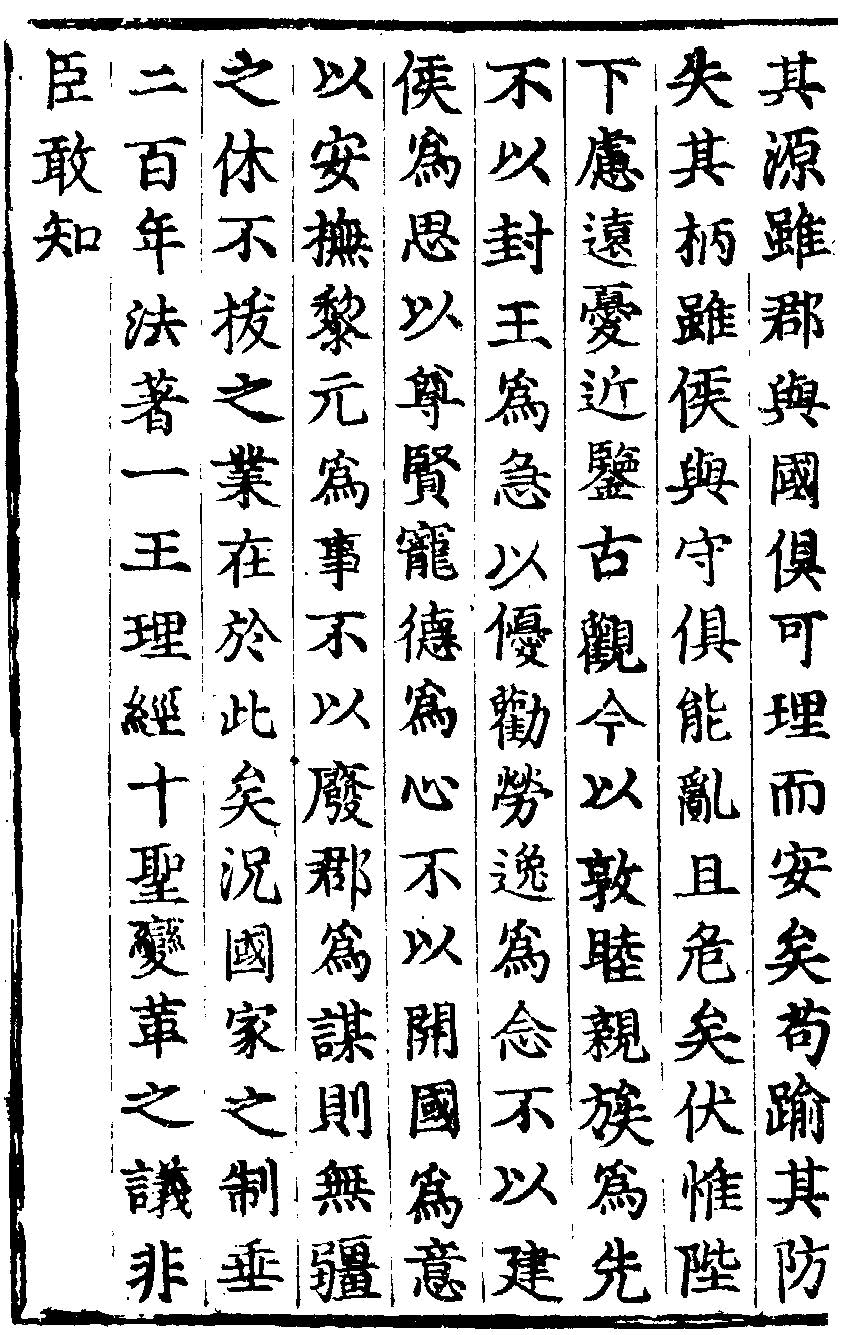 其源雖郡與國俱可理而安矣苟踰其防
失其柄雖侯與守俱能亂且危矣伏惟陛
下慮遠憂近鑒古觀今以敦睦親族爲先
不以封王爲急以優勸勞逸爲念不以建
侯爲思以尊賢寵德爲心不以開國爲意
以安撫黎元爲事不以廢郡爲謀則無疆
之休不拔之業在於此矣況國家之制垂
二百年法著一王理經十聖變革之議非
臣敢知